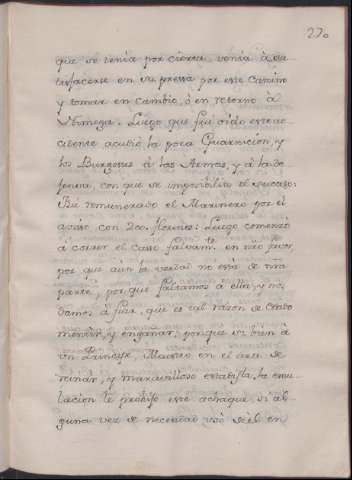 270
que se tenia por cierta, venia à sa
tisfacerse en su pressa por este Camino
y tomar en cambio, ò en retorno à
Luego que fue oido este ac
cidente acudiò la poca Guarnicion, y
los Burgeses à las Armas, y à la de
fensa, con que se imposibilito el suceso:
Fue remunerado el Marinero por el
aviso con 200. florines: Luego comenzò
à correr el caso falsam.te en nr̃o favor
por que aun la verdad no està de nr̃a
parte, por que faltamos à ella, y nos
damos à que es tal razon de estado
mentir, y engañar, porque si bien à
un Principe, Maestro en el arte de
reinar, y maravilloso estadista, la emu
lacion le prohijò este achaque, si al
guna vez de necesidad usò de èl en